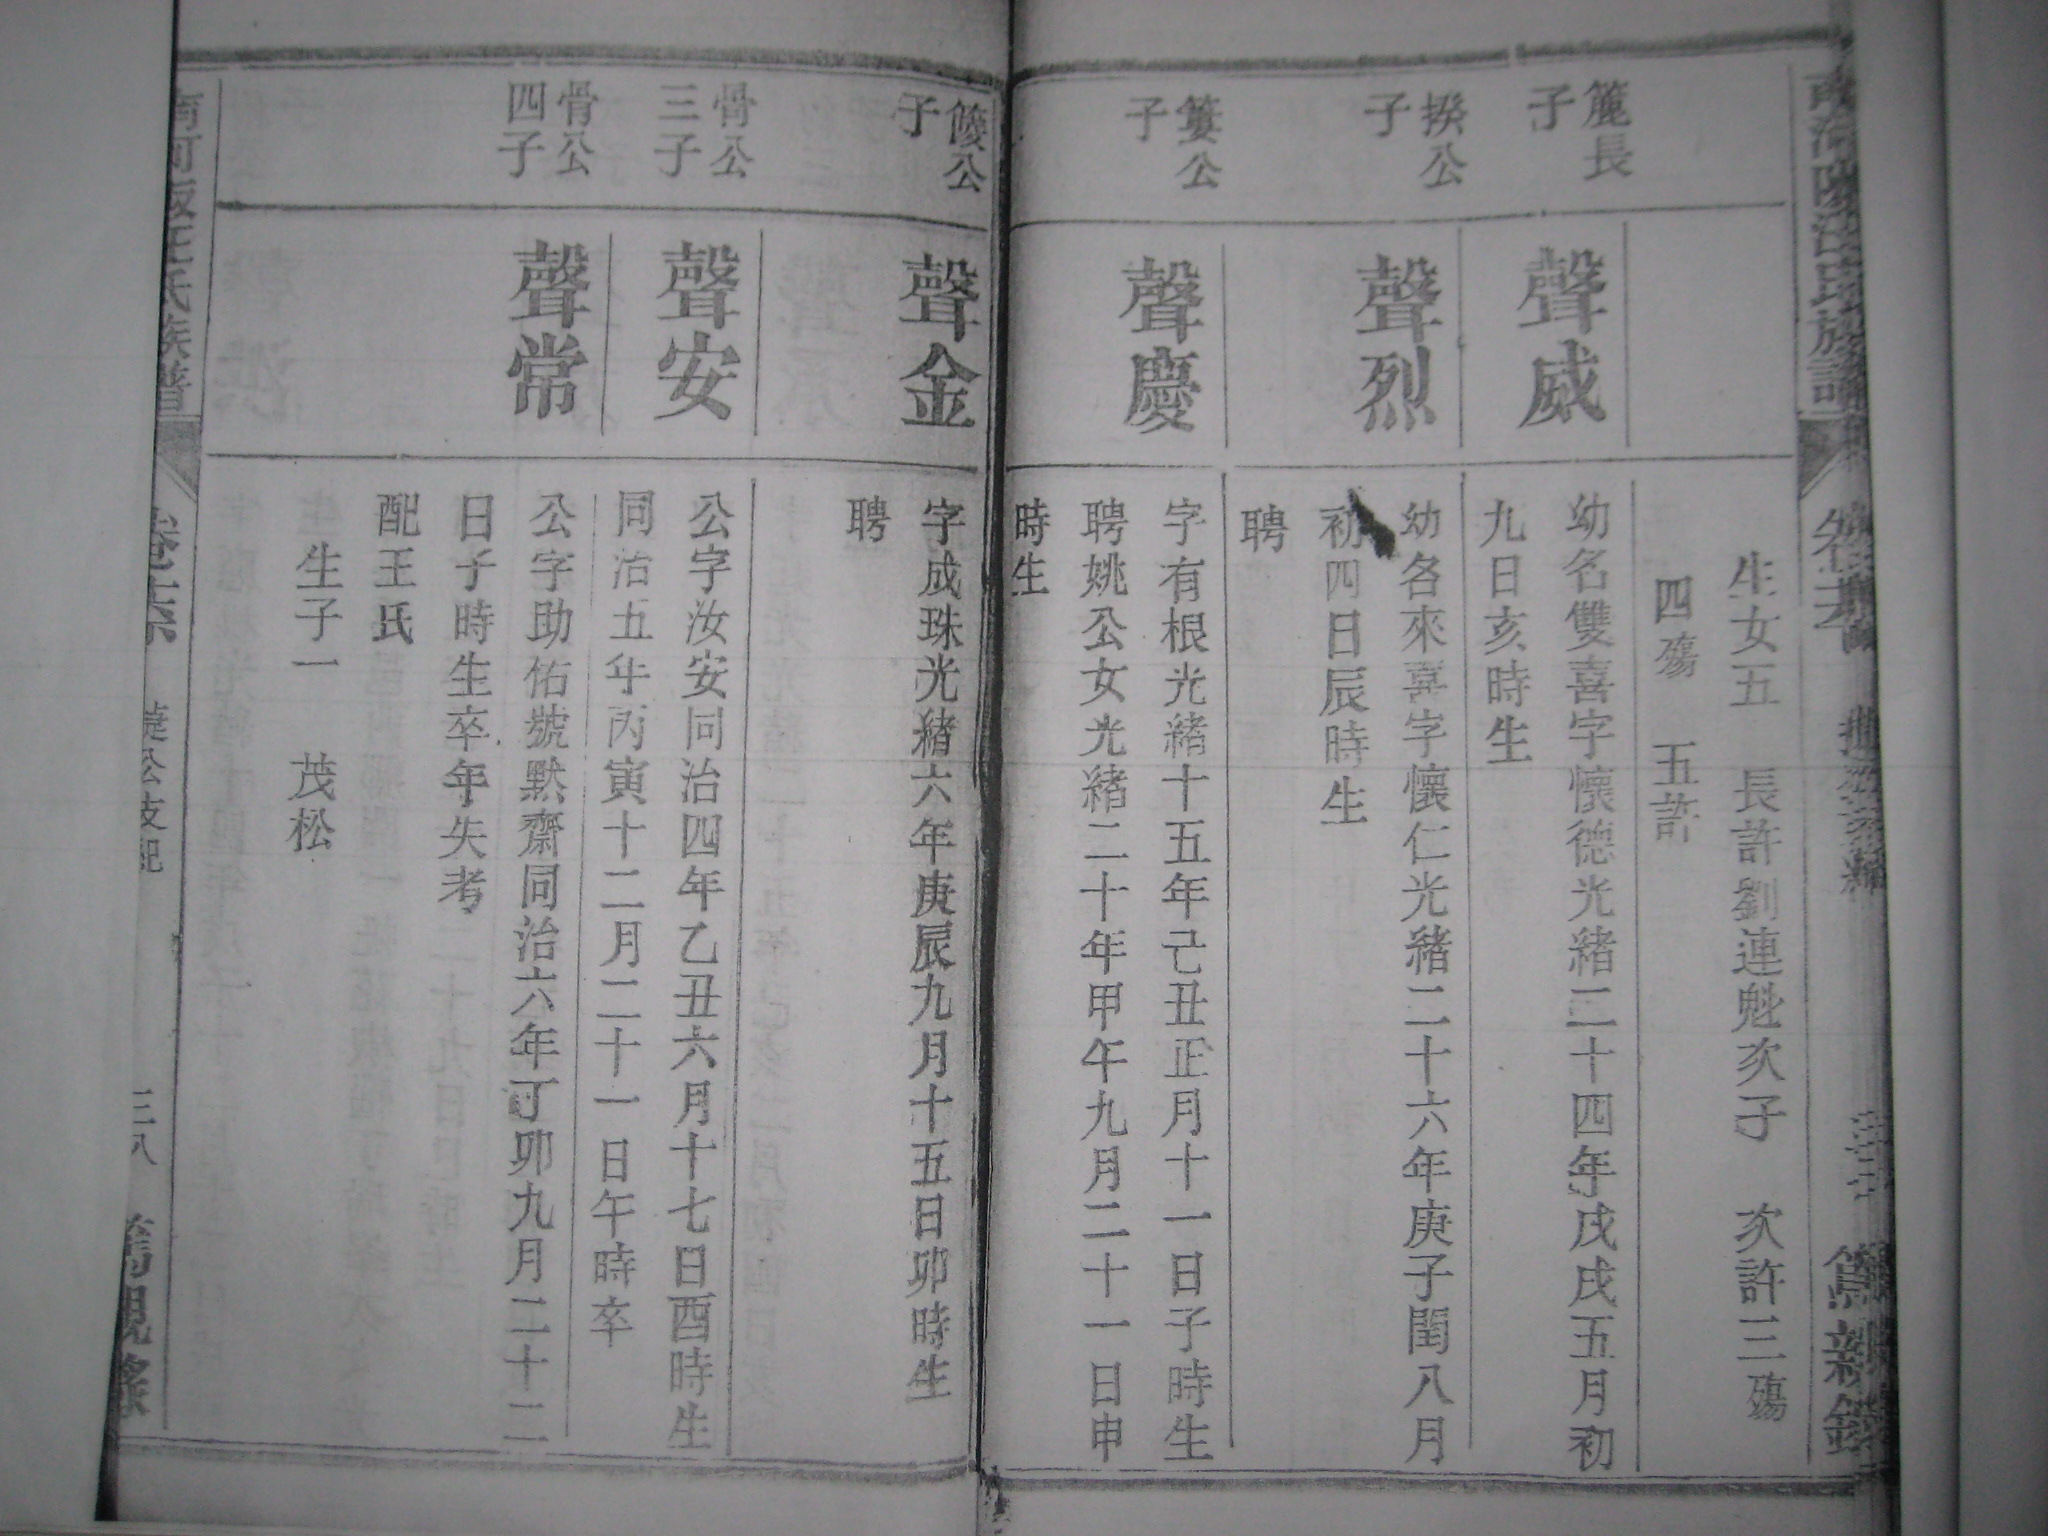 生女五　長許劉連魁次子　次許三殤
四殤　五許
長
子
聲威
幼名雙喜字懷德光緒二十四年戊戌五月初
九日亥時生
揆公
子
聲烈
幼各來喜字懷仁光緒二十六年庚子閏八月
初四日辰時生
聘
公
子
聲慶
字有根光緒十五年己丑正月十一日子時生
聘姚公女光緒二十年甲午九月二十一日申
時生
公
子
聲金
字成珠光緒六年庚辰九月十五日卯時生
聘
骨公
三子
聲安
公字汝安同治四年乙丑六月十七日酉時生
同治五年丙寅十二月二十一日午時卒
骨公
四子
聲常
公字助佑號默齋同治六年丁卯九月二十二
日子時生卒年失考
配王氏
生子一　茂松
三八